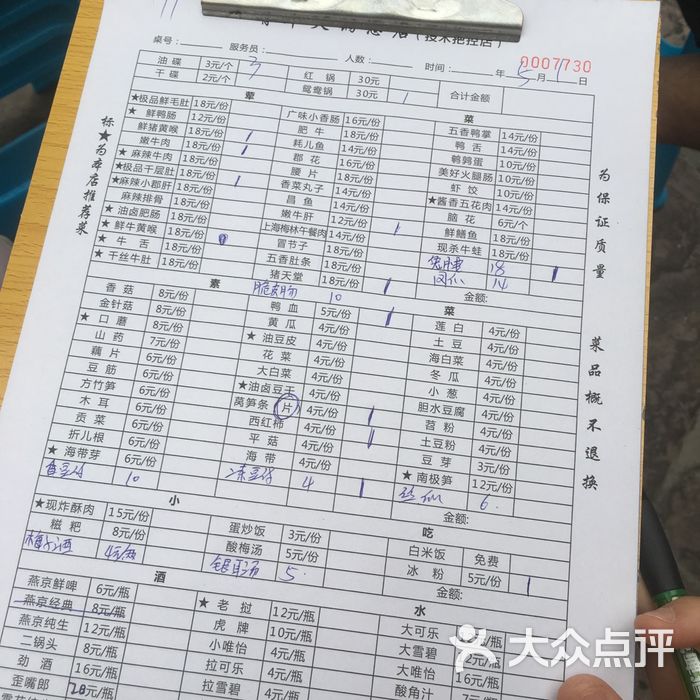 (技术把控店)
桌号: 服务员: 人数: 时间: 年 5 月 1 日
0007730
油碟 3元/个 3 红锅 30元 合计金额
干碟 2元/个 鸳鸯锅 30元 1
荤 菜
★极品鲜毛肚 18元/份 广味小香肠 16元/份 五香鸭掌 14元/份
★鲜鸭肠 12元/份 肥牛 18元/份 鸭舌 14元/份
鲜猪黄喉 18元/份 1 耗儿鱼 14元/份 鹌鹑蛋 10元/份
嫩牛肉 18元/份 1 郡花 16元/份 美好火腿肠 10元/份
★麻辣牛肉 18元/份 腰片 18元/份 虾饺 10元/份
★极品千层肚 18元/份 1 香菜丸子 14元/份 ★酱香五花肉 14元/份
★麻辣小郡肝 18元/份 昌鱼 18元/份 脑花 6元/个
麻辣排骨 18元/份 嫩牛肝 12元/份 鲜鳝鱼 18元/份
★油卤肥肠 18元/份 上海梅林午餐肉 14元/份 1 现杀牛蛙 18元/份
★鲜牛黄喉 18元/份 冒节子 18元/份 18 1
★牛舌 18元/份 五香肚条 18元/份 14
★干丝牛肚 18元/份 猪天堂 18元/份 1 金额:
脆皮肠 10 1
素 菜
香菇 8元/份 鸭血 5元/份 1 莲白 4元/份
金针菇 8元/份 黄瓜 4元/份 土豆 4元/份
★口蘑 8元/份 ★油豆皮 4元/份 海白菜 4元/份
山药 7元/份 花菜 4元/份 冬瓜 4元/份
藕片 6元/份 大白菜 4元/份 小葱 4元/份
豆筋 6元/份 ★油卤豆干 4元/份 胆水豆腐 4元/份
方竹笋 6元/份 莴笋条 片 4元/份 1 苕粉 4元/份
木耳 6元/份 西红柿 4元/份 1 土豆粉 4元/份
贡菜 6元/份 平菇 4元/份 豆芽 3元/份
折儿根 6元/份 海带 4元/份 ★南极笋 12元/份
★海带芽 6元/份 4 1 6
10 金额:
小 吃
★现炸酥肉 15元/份 蛋炒饭 3元/份 白米饭 免费
糍粑 8元/份 酸梅汤 5元/份 冰粉 5元/份 1
银耳汤 5 金额:
酒 水
燕京鲜啤 6元/瓶 ★老挝 12元/瓶 大可乐
燕京经典 8元/瓶 虎牌 10元/瓶 大雪碧
燕京纯生 12元/瓶 小唯怡 4元/瓶 大唯怡
二锅头 8元/瓶 拉可乐 4元/瓶 酸角汁
劲酒 16元/瓶 拉雪碧
歪嘴郎 20元/瓶
标★为本店推荐菜
为保证质量 菜品概不退换
大众点评